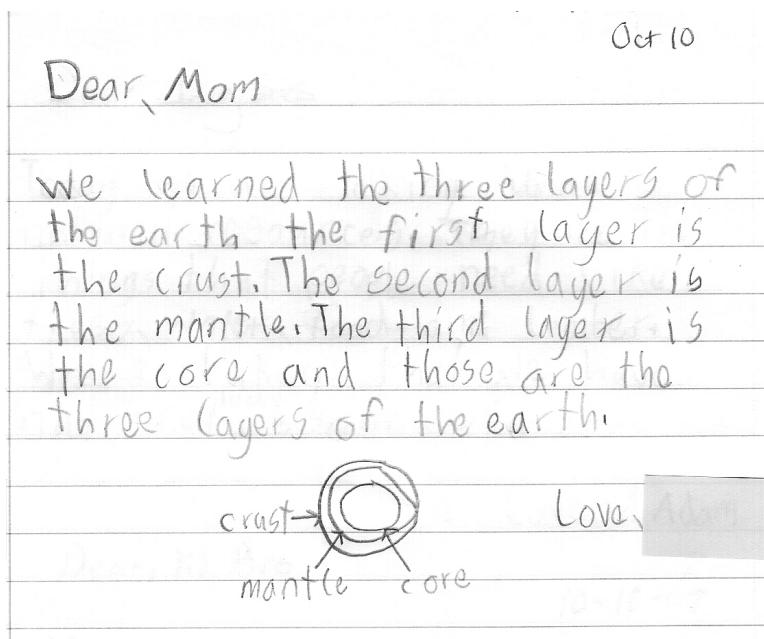 Oct 10
Dear, Mom
We learned the three layers of
the earth the first layer is
the crust. The second layer is
the mantle. The third layer is
the core and those are the
three layers of the earth.
crust
Love,
mantle core